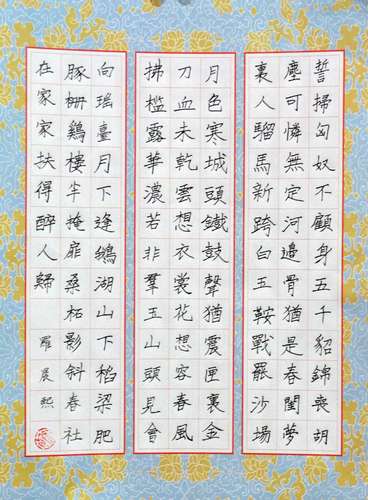 誓掃匈奴不顧身五千貂錦喪胡
塵可憐無定河邊骨猶是春閨夢
裏人騮馬新跨白玉鞍戰罷沙場
月色寒城頭鐵鼓聲猶震匣裏金
刀血未乾雲想衣裳花想容春風
拂檻露華濃若非羣玉山頭見會
向瑤臺月下逢鵝湖山下稻梁肥
豚柵鷄棲半掩扉桑柘影斜春社
在家家扶得醉人歸 羅展熙